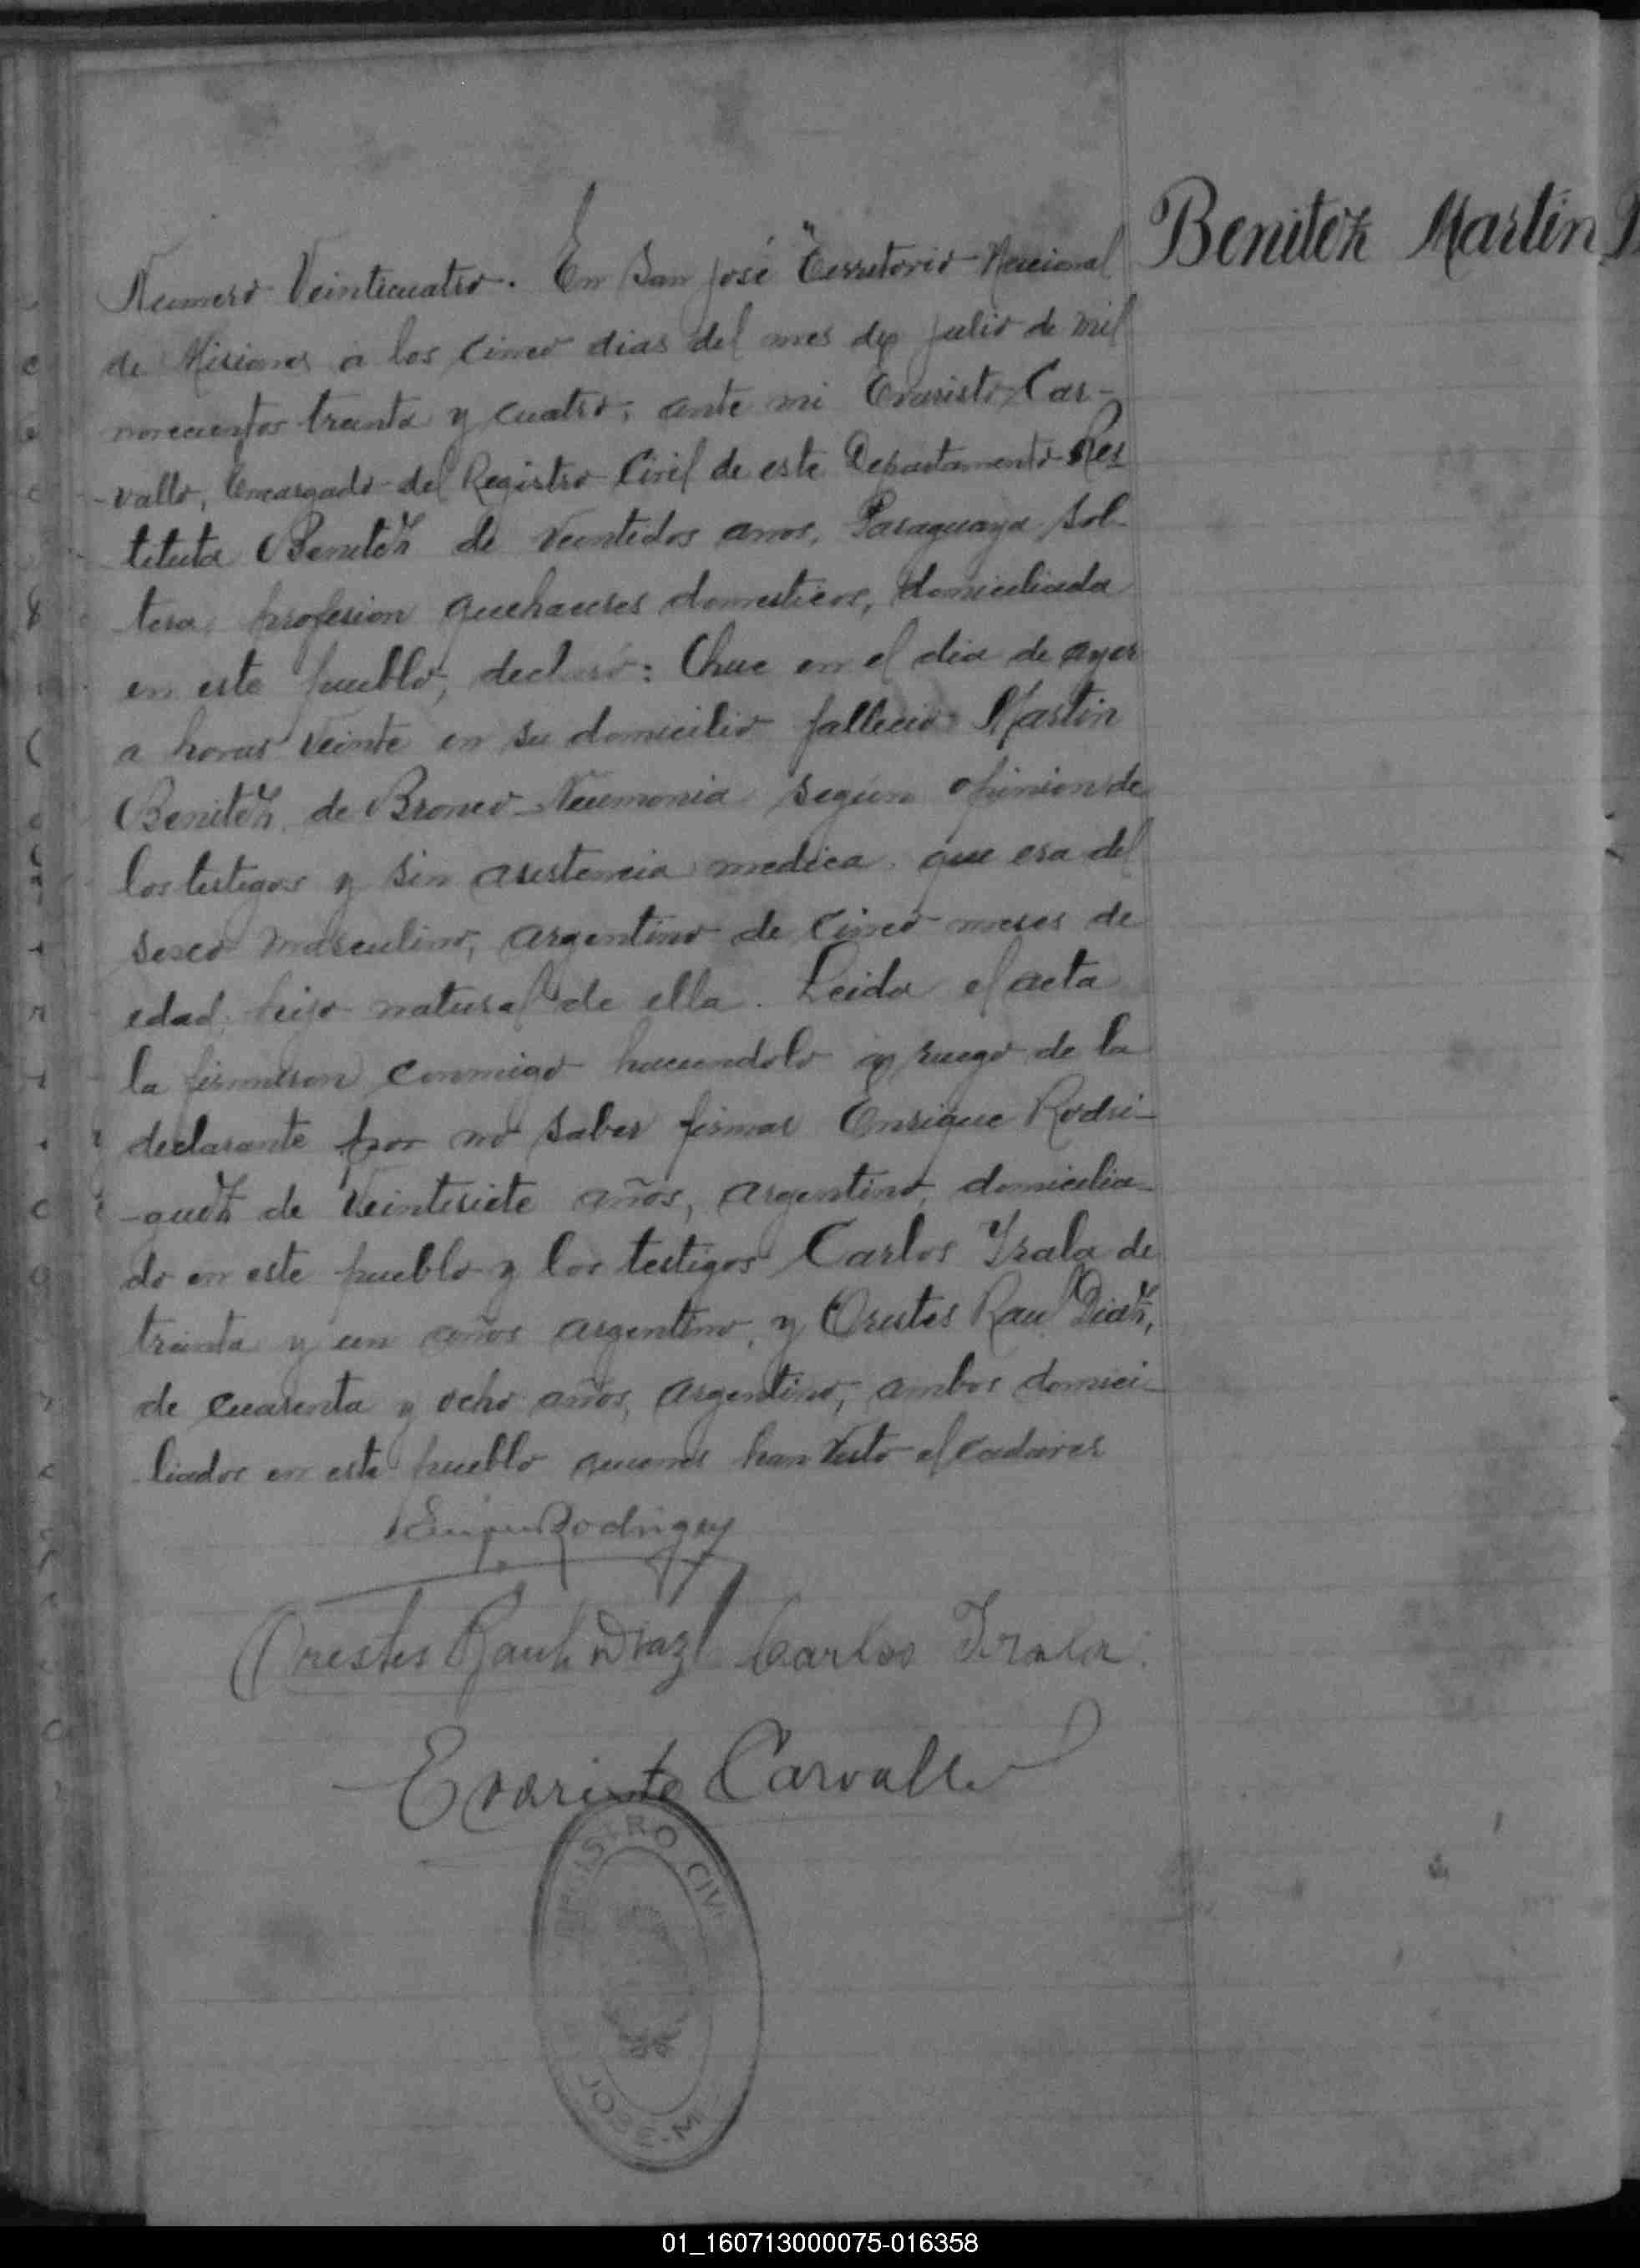 Benitez Martin
Numero Veinticuatro. En San José Territorio Nacional
de Misiones a los cinco dias del mes de Julio de mil
novecientos treinta y cuatro; ante mi Evaristo Car-
-vallo, Encargado del Registro Civil de este Departamento Res
tituta Benitez de veintidos anos, Paraguaya sol-
tera, profesion quehaceres domesticos, domiciliada
en este pueblo, declaró: Que en el dia de ayer
a horas veinte en su domicilio fallecio Martin
Benitez de Bronco-Neumonia según opinion de
los testigos y sin asistencia medica. que era del
sexo masculino, argentino de cinco meses de
edad hijo natural de ella. Leida el acta
la firmaron conmigo haciendolo a ruego de la
declarante por no saber firmar Enrique Rodri-
-guez de Veintisiete años, argentino, domicilia-
do en este pueblo y los testigos Carlos Yrala de
treinta y un años argentino, y Orestes Raul Diaz,
de cuarenta y ocho años, argentino, ambos domici-
liados en este pueblo quienes han visto el cadaver
Enrique Rodriguez
Orestes Raul Diaz Carlos Irala.
Evaristo Carvallo
REGISTRO CIVIL
JOSE-M
01_160713000075-016358